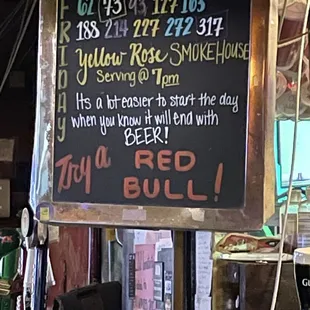 FRIDAY
62 73 93 127 163
188 214 227 272 317
Yellow Rose SMOKEHOUSE
Serving @ 7pm
Its a lot easier to start the day
when you know it will end with
BEER!
Try a RED
BULL!